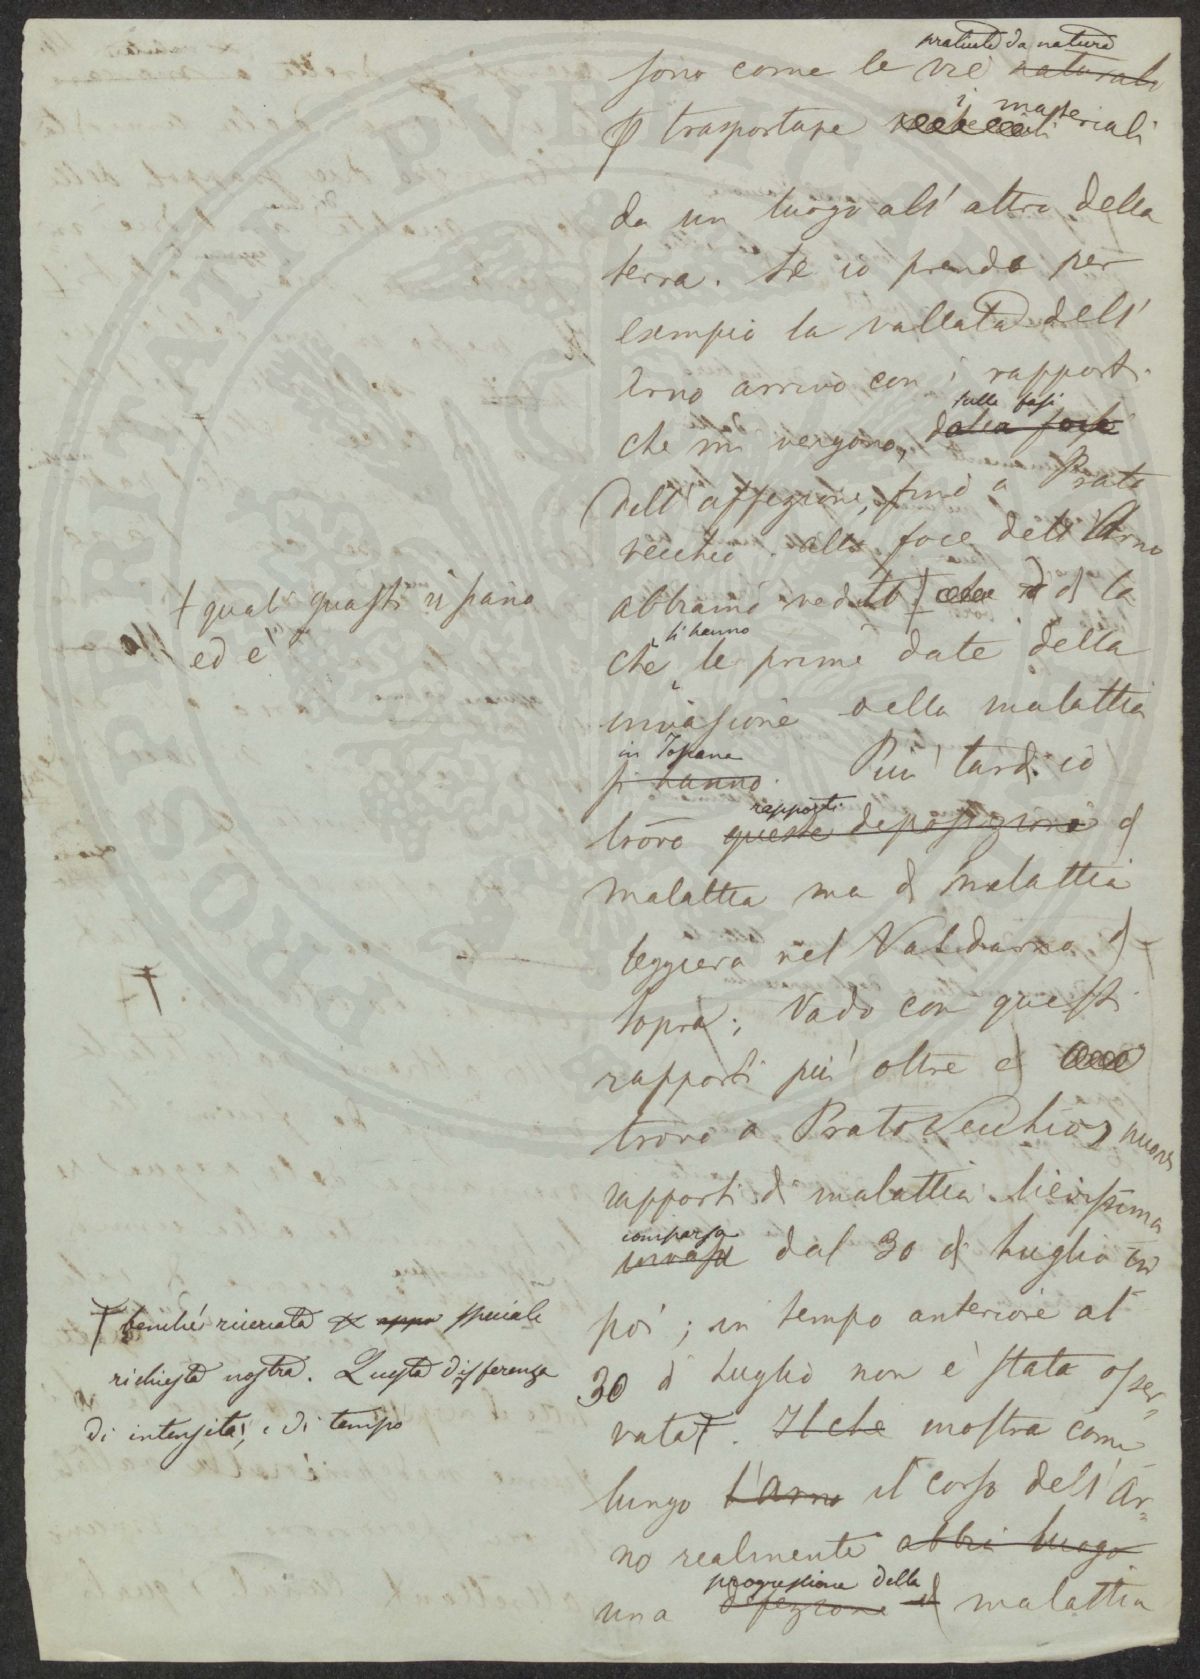 praticate da natura
sono come le vie naturali
i materiali
trasportare
da un luogo all' altro della
terra. Se io prendo per
esempio la vallata dell'
Arno arrivo con i rapporti
sulle fasi
che mi vengono, dalla foce
dell' affezione, fino a Prato
vecchio. Alla foce dell' Arno
abbiamo veduto † che di là
† quali guasti vi siano
ed è
si hanno
che le prime date della
invasione della malattia
in Toscana
si hanno. Più tardi io
rapporti
trovo queste deposizioni di
malattia ma di malattia
leggiera nel Valdarno di
sopra; Vado con questi
rapporti più oltre e
trovo a PratoVecchio nuovi
rapporti di malattia lievissima
comparsa
invasa dal 30 di Luglio in
poi; in tempo anteriore al
30 di Luglio non è stata osser=
vata†. Il che mostra come
† benché ricercata speciale
richiesta nostra. Questa differenza
di intensità, e di tempo
lungo l'Arno il corso dell' Ar=
no realmente abbia luogo
progressione della
una di malattia
PROSPERITATI PVBLICAE